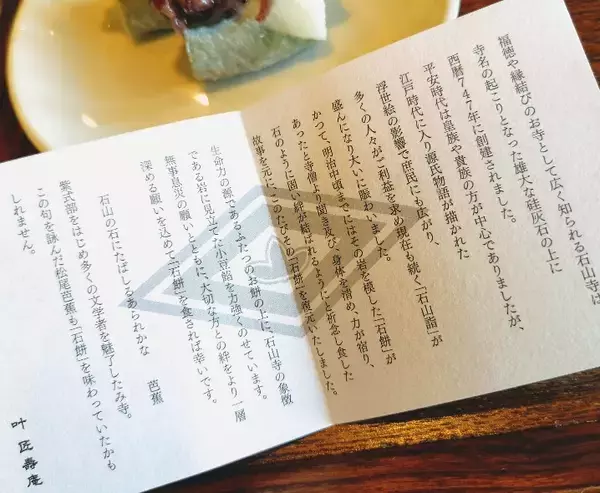 福徳や縁結びのお寺として広く知られる石山寺は
寺名の起こりとなった雄大な硅灰石の上に
西暦747年に創建されました。
平安時代は皇族や貴族の方が中心でありましたが、
江戸時代に入り源氏物語が描かれた
浮世絵の影響で庶民にも広がり、
多くの人々がご利益を求め現在も続く「石山詣」が
盛んになり大いに賑わいました。
かつて、明治中頃までにはその岩を模した「石餅」が
あったと寺僧より聞き及び、身体を清め、力が宿り、
石のように固い絆が結ばれるようにと祈念し食した
故事を元に、このたびその「石餅」を
生命力の源であるふたつのお餅の上に、石山寺の象徴
である岩に見立てた小豆餡を力強くのせています。
無事息災の願いとともに、大切な方との絆をより一層
深める願いを込めて「石餅」を食されば幸いです。
石山の石にたばしるあられかな 芭蕉
紫式部をはじめ多くの文学者を魅了したみ寺。
この句を詠んだ松尾芭蕉も「石餅」を味わっていたかも
しれません。
叶 匠壽庵